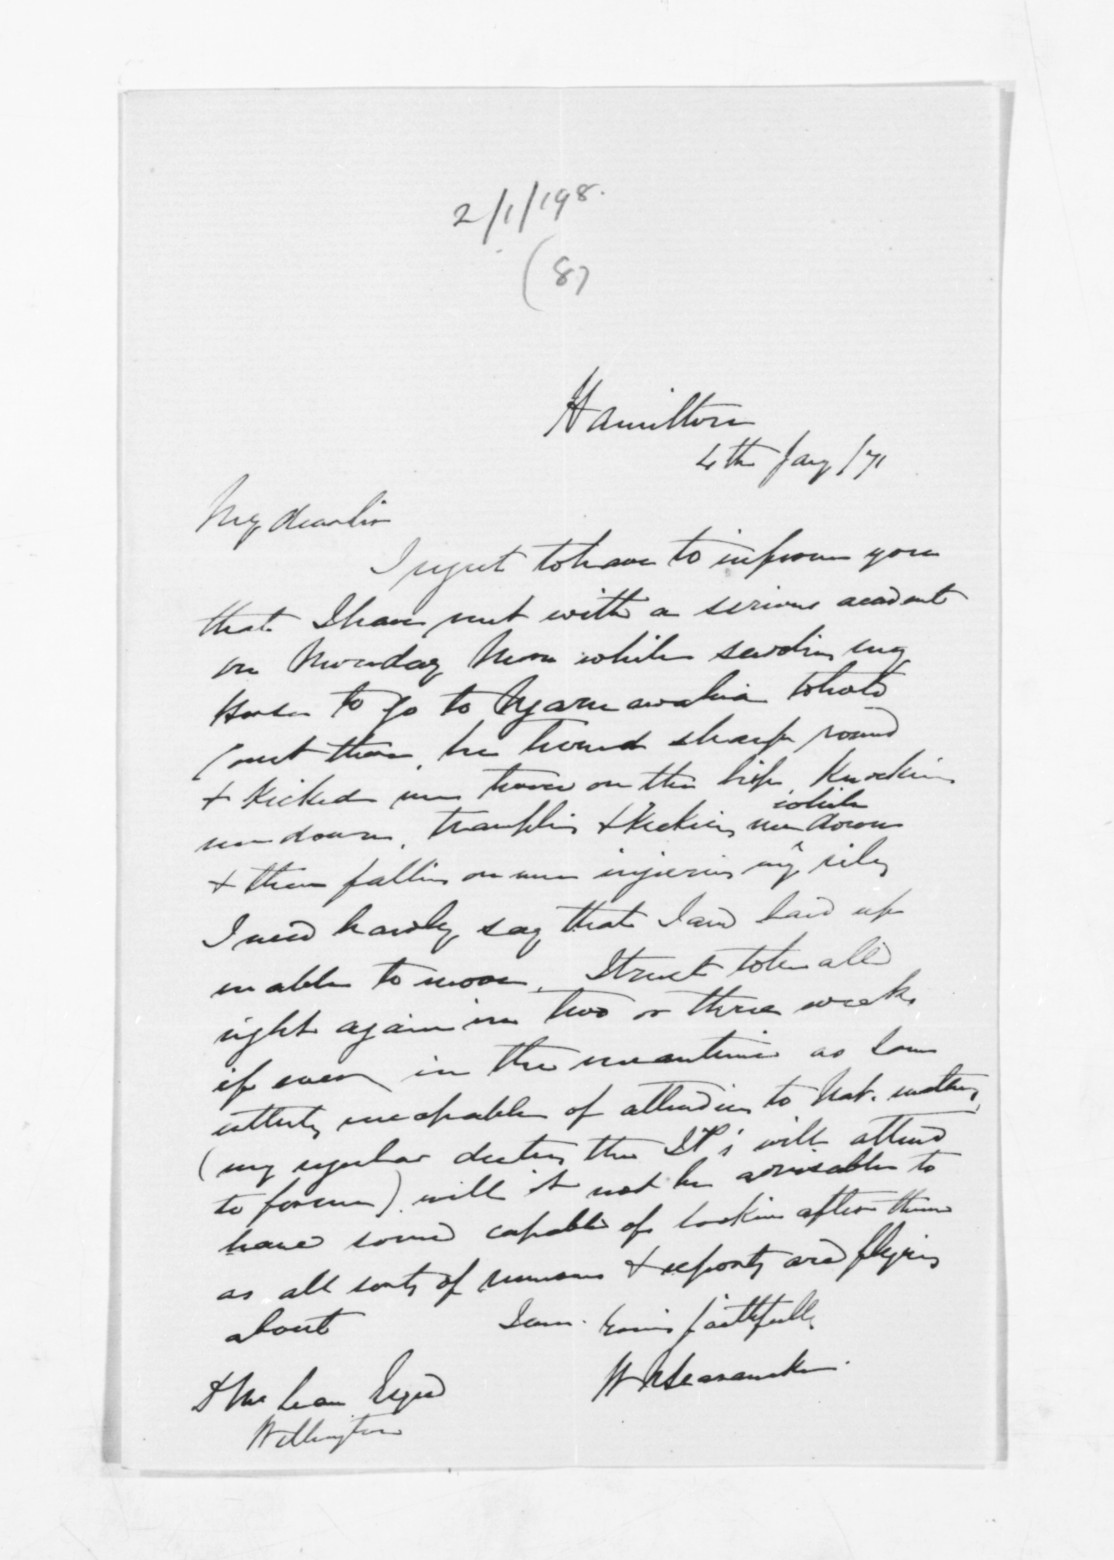 2/1/198.
(87
Hamilton
4th Jany /71
My dear Sir
I regret to have to inform you
that I have met with a serious accident
on Monday Morn while saddling my
Horse to go to Ngaruawahia to hold
Court there, he turned sharp round
& kicked me twice on the hip, Knocking
me down, trampling & kicking me while down
& then falling on me injuring my ribs
I need hardly say that I am laid up
unable to move, I trust to be all
right again in two or three weeks
if even, in the meantime as I am
utterly incapable of attending to Nat. matters,
(my regular duties the JP's will attend
to ) will it not be advisable to
have some capable of looking after them
as all sorts of rumours & reports are flying
about I am. Yours faithfully
W N Searancke.
D McLean Esqre
Wellington